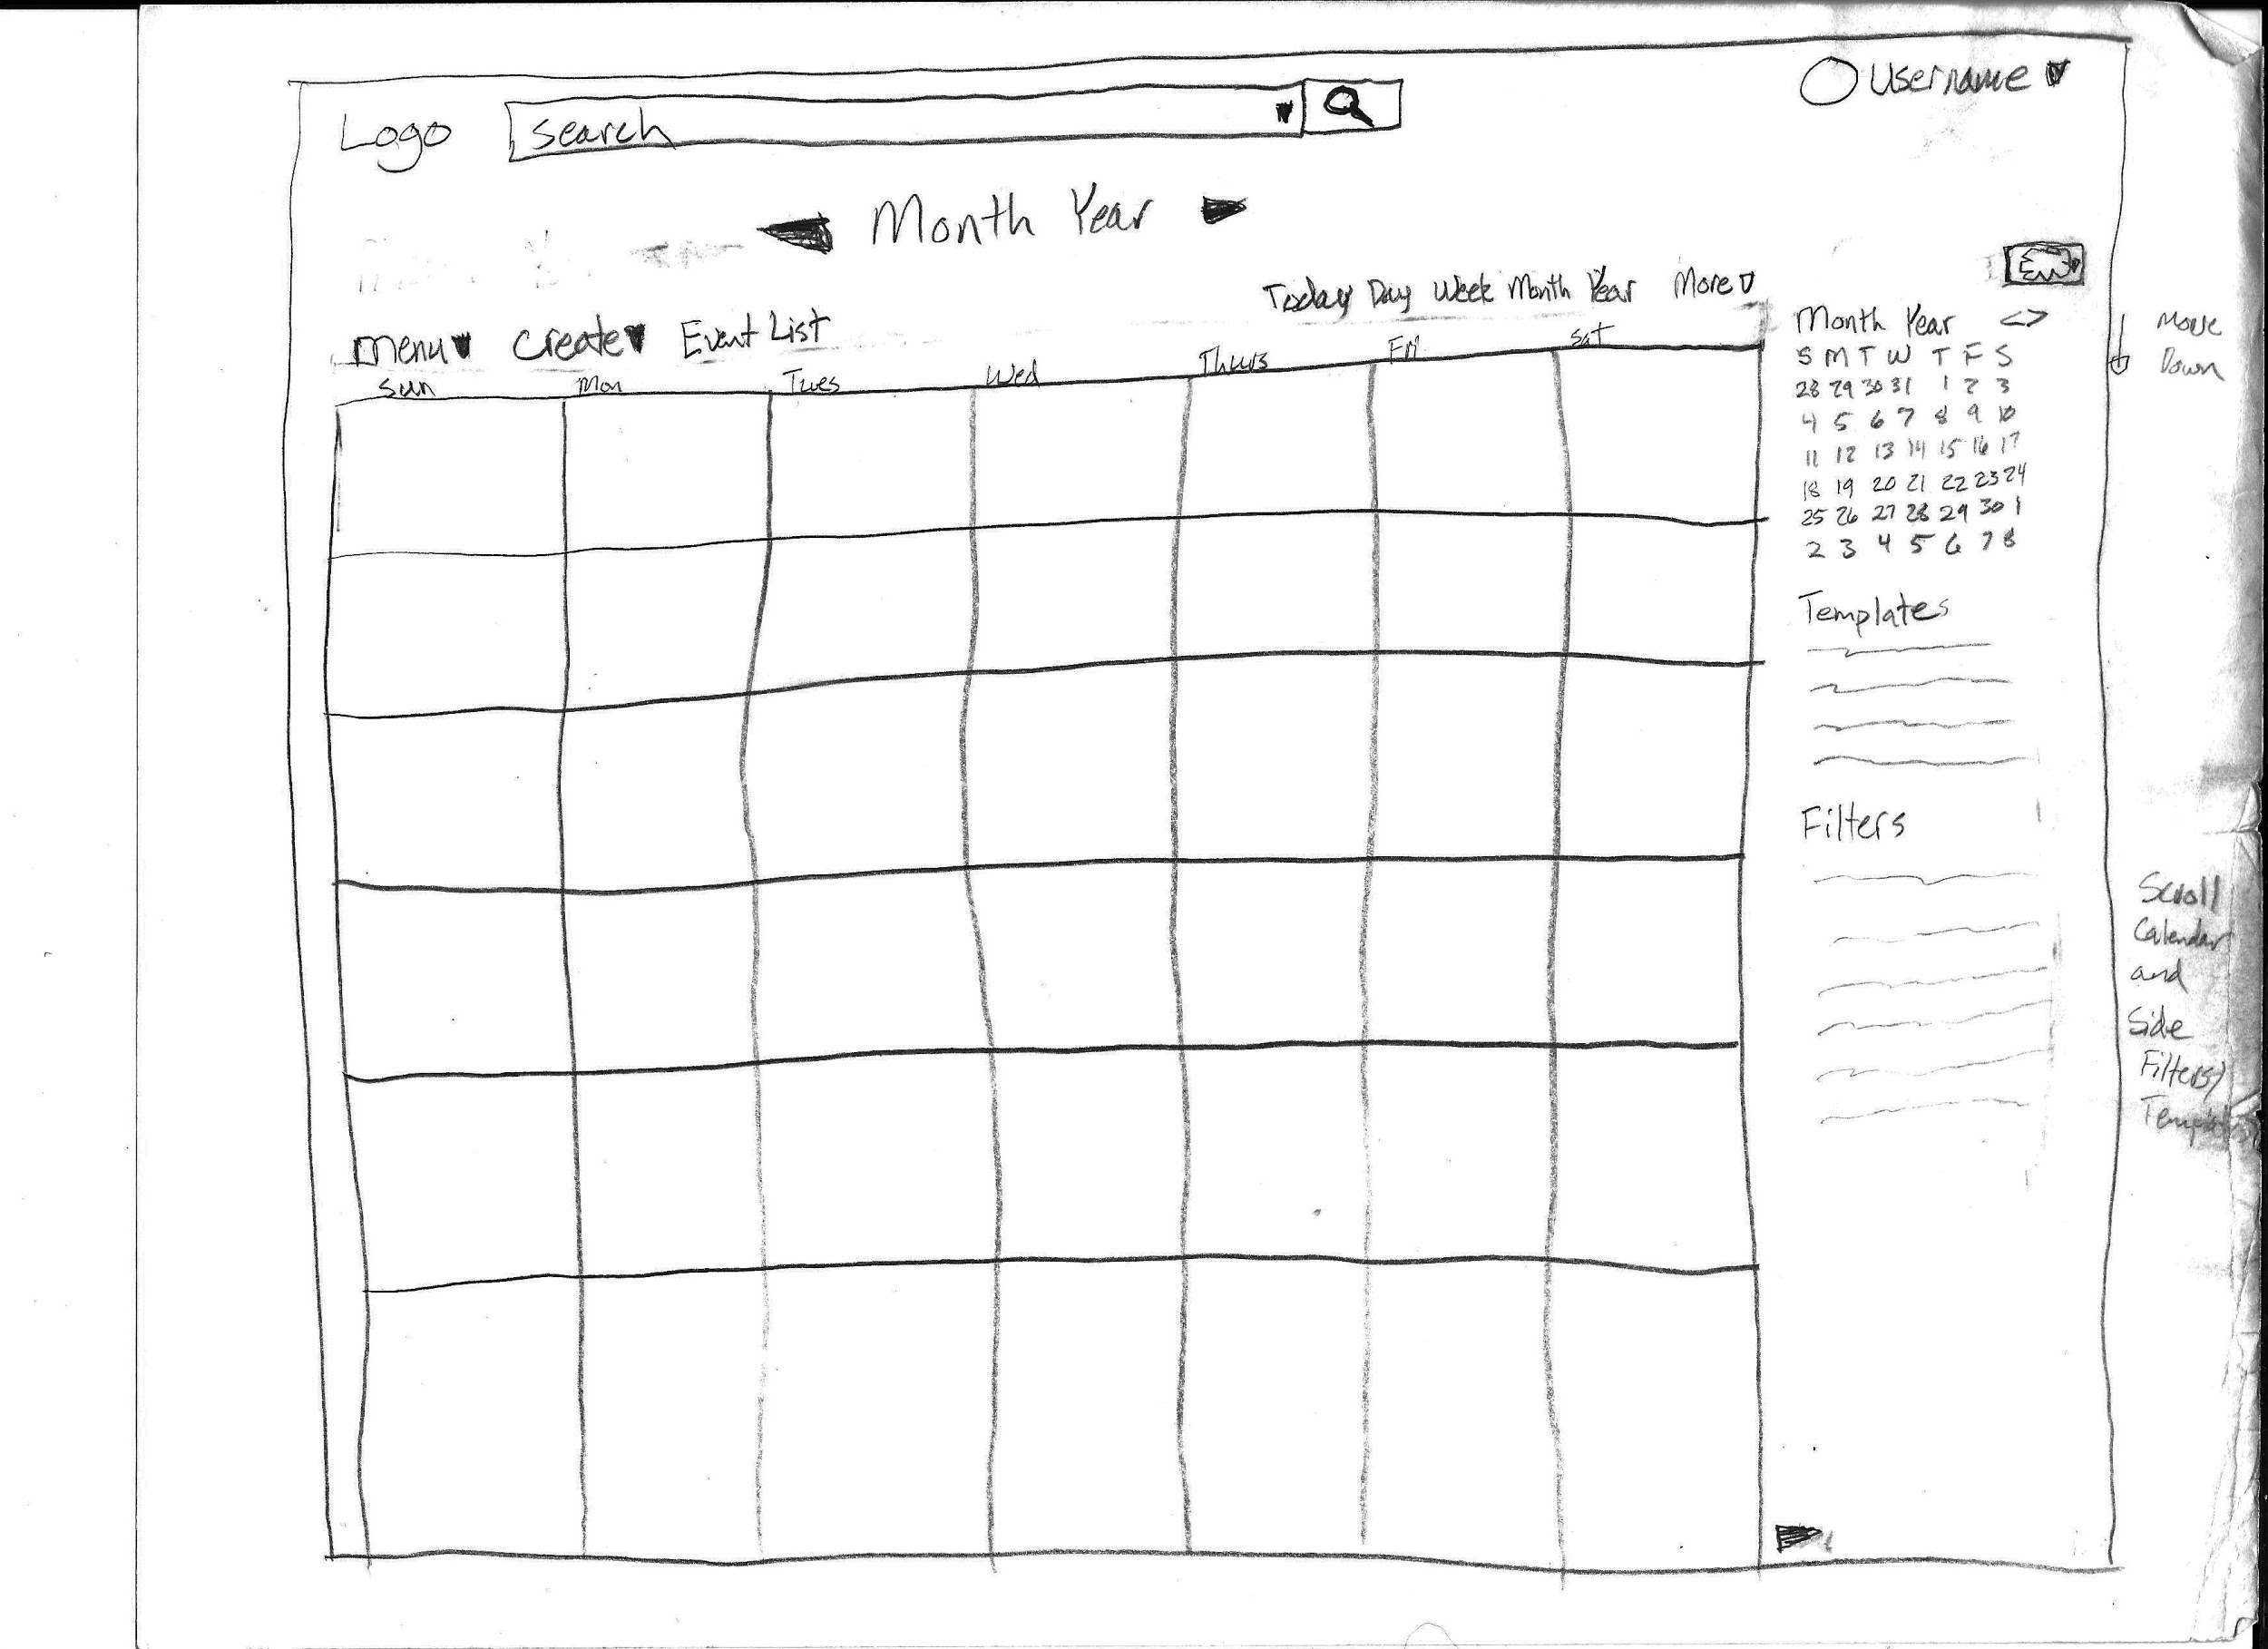 Logo
search
Username
Month Year
Today Day Week Month Year More
menu create Event List
Sun Mon Tues Wed Thurs Fri Sat
Month Year <>
S M T W T F S
28 29 30 31 1 2 3
4 5 6 7 8 9 10
11 12 13 14 15 16 17
18 19 20 21 22 23 24
25 26 27 28 29 30 1
2 3 4 5 6 7 8
Templates
Filters
Move
Down
Scroll
Calendar
and
Side
Filters/